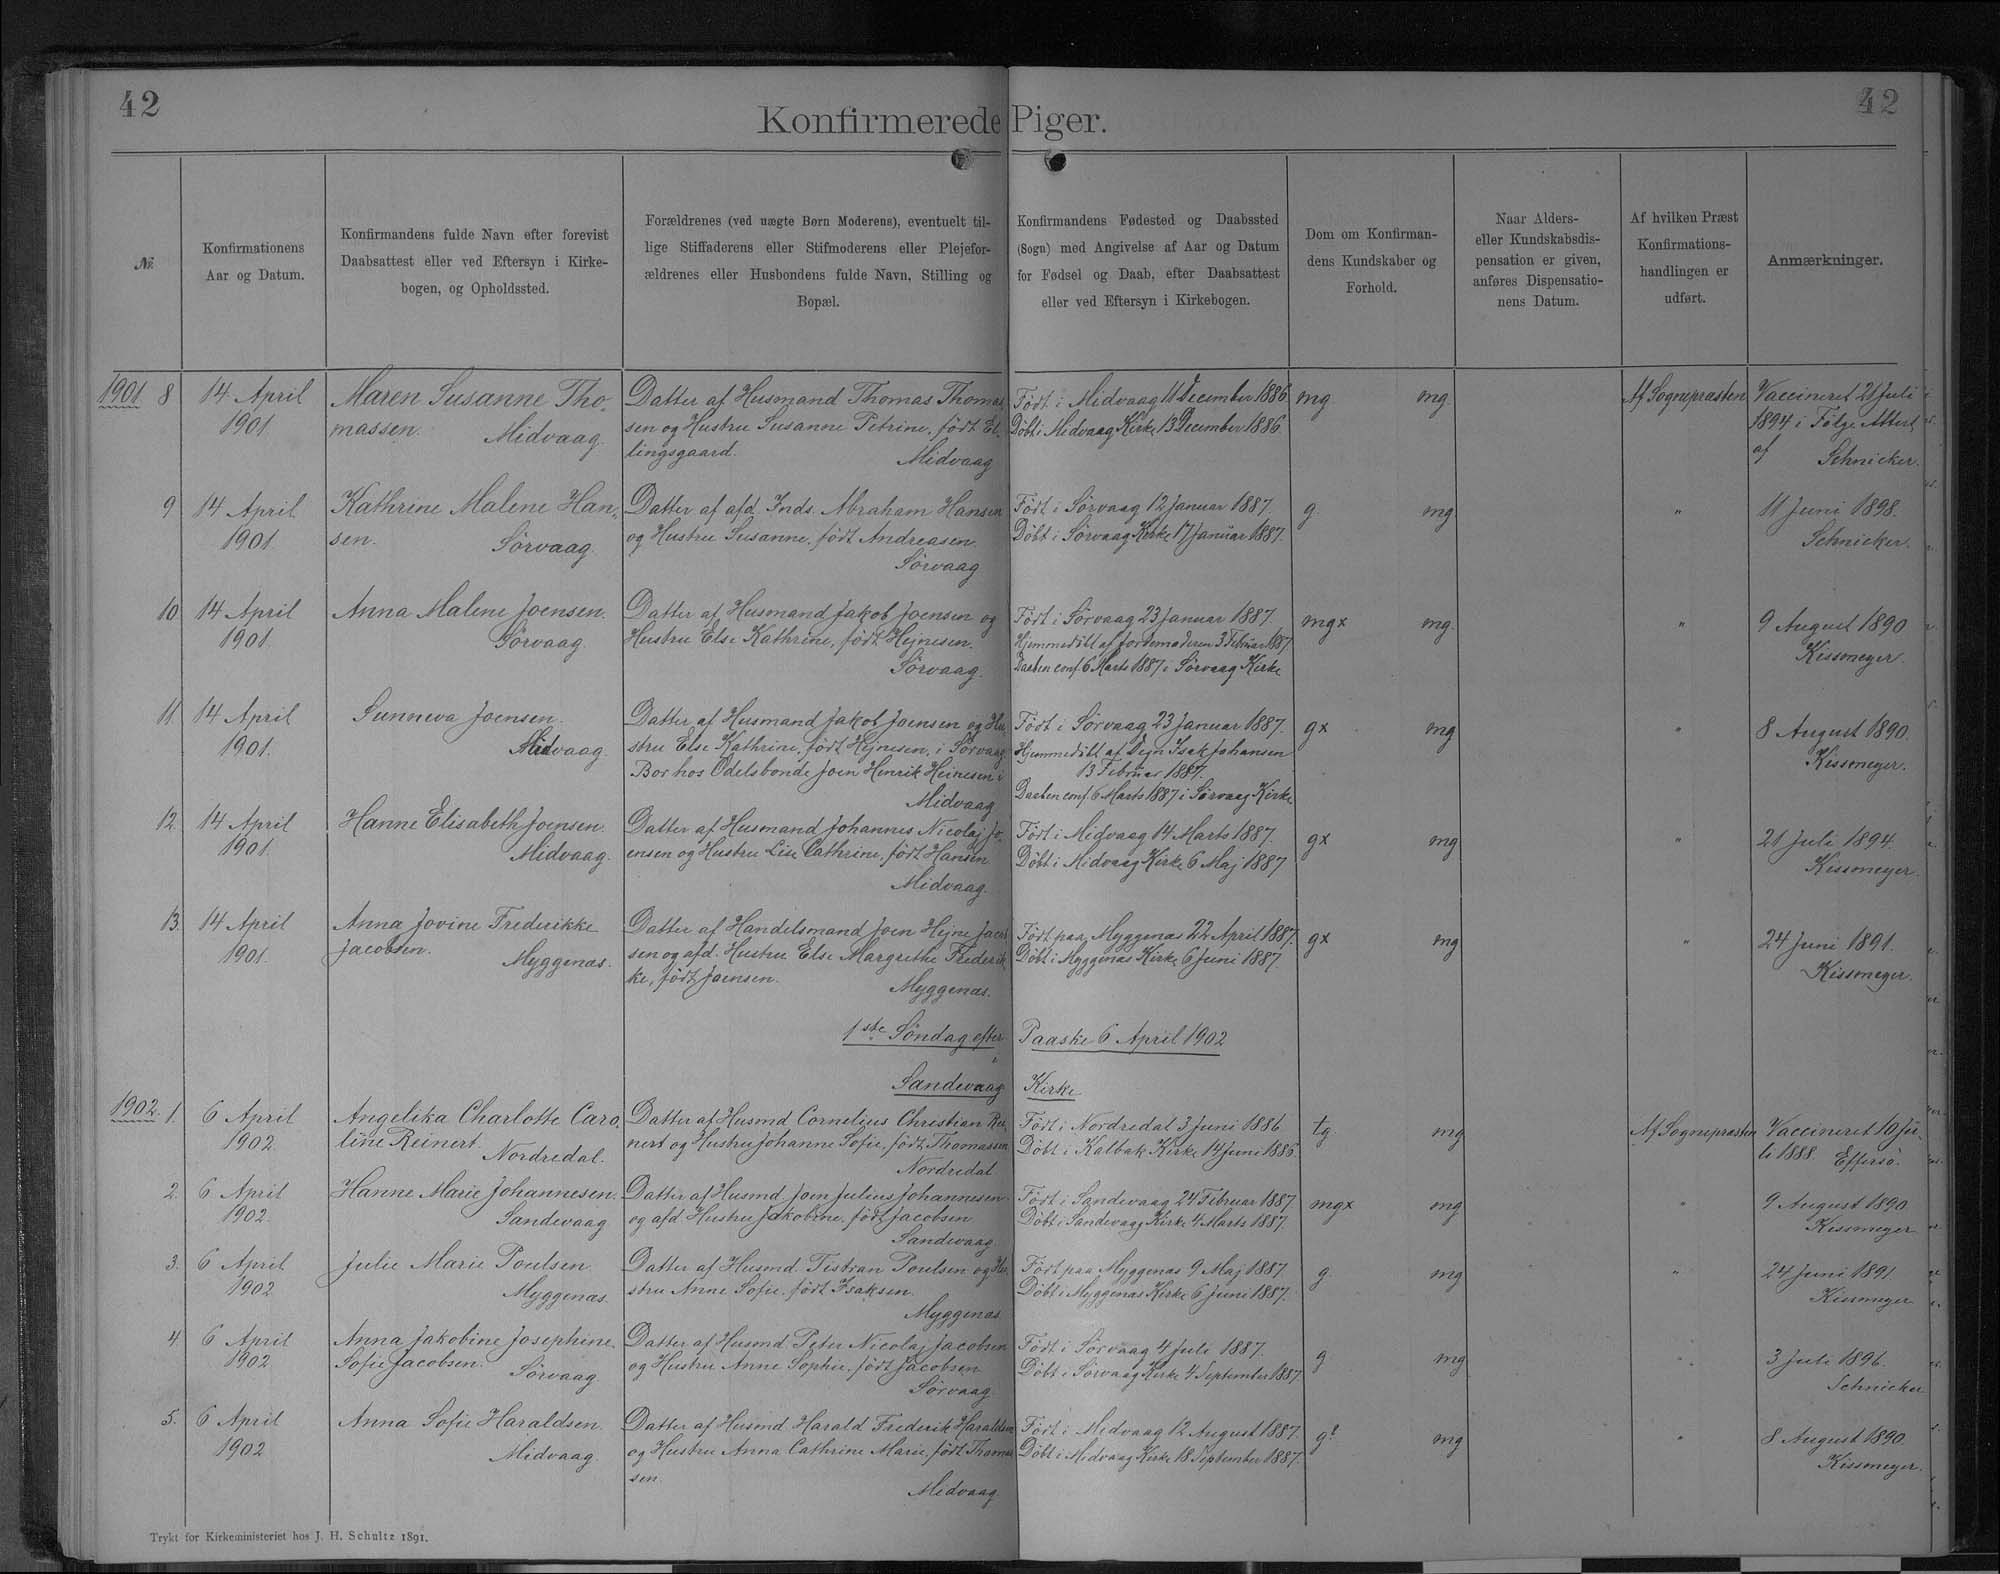 42
42
Konfirmerede Piger.
№.
Konfirmationens
Aar og Datum.
Konfirmandens fulde Navn efter forevist
Daabsattest eller ved Eftersyn i Kirke-
bogen, og Opholdssted.
Forældrenes (ved uægte Børn Moderens), eventuelt til-
lige Stiffaderens eller Stifmoderens eller Plejefor-
ældrenes eller Husbondens fulde Navn, Stilling og
Bopæl.
Konfirmandens Fødested og Daabssted
(Sogn) med Angivelse af Aar og Datum
for Fødsel og Daab, efter Daabsattest
eller ved Eftersyn i Kirkebogen.
Dom om Konfirman-
dens Kundskaber og
Forhold.
Naar Alders-
eller Kundskabsdis-
pensation er given,
anføres Dispensatio-
nens Datum.
Af hvilken Præst
Konfirmations-
handlingen er
udført.
Anmærkninger.
1901 8
14 April
1901
Maren Susanne Tho-
massen. Midvaag.
Datter af Husmand Thomas Thomas-
sen og Hustru Susanne Petrine, født El-
lingsgaard. Midvaag
Født i Midvaag 11 December 1886
Døbt i Midvaag Kirke 13 December 1886.
mg. mg.
Af Sognepræsten
Vaccineret 21 Juli
1894 i Følge Attest
af Schnicker.
9
14 April
1901
Kathrine Malene Han-
sen. Sørvaag.
Datter af afd. Inds. Abraham Hansen
og Hustru Susanne, født Andreasen.
Sørvaag
Født i Sørvaag 12 Januar 1887.
Døbt i Sørvaag Kirke 17 Januar 1887.
g. mg
"
11 Juni 1898.
Schnicker.
10
14 April
1901.
Anna Malene Joensen.
Sørvaag.
Datter af Husmand Jakob Joensen og
Hustru Else Kathrine, født Hejnesen.
Sørvaag.
Født i Sørvaag 23 Januar 1887.
Hjemmedøbt af Jordemoderen 3 Februar 1887
Daaben conf. 6 Marts 1887 i Sørvaag Kirke
mgx mg.
"
9 August 1890
Kissmeyer.
11.
14 April
1901.
Sunneva Joensen.
Midvaag.
Datter af Husmand Jakob Joensen og Hu-
stru Else Kathrine, født Hejnesen, i Sørvaag.
Bor hos Odelsbonde Joen Henrik Heinesen i
Midvaag
Født i Sørvaag 23 Januar 1887.
Hjemmedøbt af Degn Isak Johansen
13 Februar 1887.
Daaben conf. 6 Marts 1887 i Sørvaag Kirke
gx mg
"
8 August 1890.
Kissmeyer.
12.
14 April
1901.
Hanne Elisabeth Joensen.
Midvaag.
Datter af Husmand Johannes Nicolaj Jo-
ensen og Hustru Lise Cathrine, født Hansen
Midvaag.
Født i Midvaag 14 Marts 1887.
Døbt i Midvaag Kirke 6 Maj 1887
gx mg
"
21 Juli 1894.
Kissmeyer.
13.
14 April
1901.
Anna Jovine Frederikke
Jacobsen. Myggenæs.
Datter af Handelsmand Joen Hejne Jacob
sen og afd. Hustru Else Margrethe Frederik
ke, født Joensen. Myggenæs.
Født paa Myggenæs 22 April 1887.
Døbt i Myggenæs Kirke 6 Juni 1887.
gx mg
"
24 Juni 1891.
Kissmeyer.
1ste Søndag efter Paaske 6 April 1902
Sandevaag Kirke
1902. 1.
6 April
1902.
Angelika Charlotte Caro-
line Reinert. Nordredal.
Datter af Husmd Cornelius Christian Rei-
nert og Hustru Johanne Sofie, født Thomassen
Nordredal
Født i Nordredal 3 Juni 1886
Døbt i Kalbak Kirke 14 Juni 1886.
tg. mg
Af Sognepræsten
Vaccineret 10 Ju-
li 1888. Effersø.
2.
6 April
1902.
Hanne Marie Johannesen.
Sandevaag
Datter af Husmd. Joen Julius Johannesen
og afd. Hustru Jakobine, født Jacobsen
Sandevaag.
Født i Sandevaag 24 Februar 1887
Døbt i Sandevaag Kirke 4 Marts 1887.
mgx mg
"
9 August 1890
Kissmeyer
3.
6 April
1902
Julie Marie Poulsen
Myggenæs
Datter af Husmd. Tistran Poulsen og Hu-
stru Anne Sofie, født Isaksen.
Myggenæs
Født paa Myggenæs 9 Maj 1887
Døbt i Myggenæs Kirke 6 Juni 1887.
g. mg
"
24 Juni 1891
Kissmeyer
4
6 April
1902
Anna Jakobine Josephine
Sofie Jacobsen. Sørvaag
Datter af Husmd. Peter Nicolaj Jacobsen
og Hustru Anne Sophie, født Jacobsen
Sørvaag
Født i Sørvaag 4 Juli 1887.
Døbt i Sørvaag Kirke 4 September 1887
g mg
"
3 Juli 1896.
Schnicker
5.
6 April
1902
Anna Sofie Haraldsen.
Midvaag.
Datter af Husmd. Harald Frederik Haraldsen
og Hustru Anna Cathrine Marie, født Thomas
sen. Midvaag
Født i Midvaag 12 August 1887.
Døbt i Midvaag Kirke 18 September 1887.
g? mg
"
8 August 1890.
Kissmeyer.
Trykt for Kirkeministeriet hos J. H. Schultz 1891.